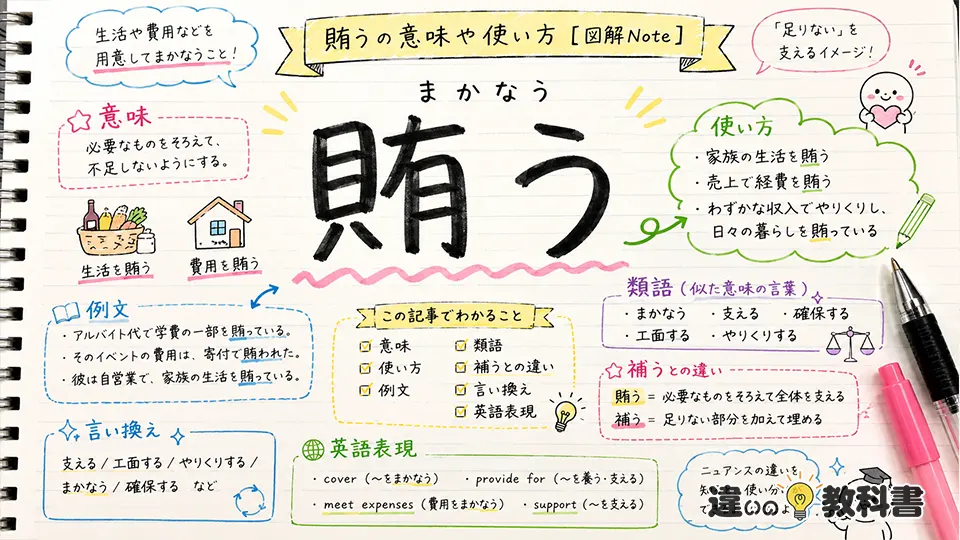 生活や費用などを
用意してまかなうこと！
賄うの意味や使い方［図解Note］
「足りない」を
支えるイメージ！
まかなう
賄う
意味
必要なものをそろえて、
不足しないようにする。
生活を賄う
費用を賄う
使い方
・家族の生活を賄う
・売上で経費を賄う
・わずかな収入でやりくりし、
日々の暮らしを賄っている
例文
・アルバイト代で学費の一部を賄っている。
・そのイベントの費用は、寄付で賄われた。
・彼は自営業で、家族の生活を賄っている。
この記事でわかること
意味
使い方
例文
類語
補うとの違い
言い換え
英語表現
類語（似た意味の言葉）
・まかなう ・支える ・確保する
・工面する ・やりくりする
補うとの違い
賄う = 必要なものをそろえて全体を支える
補う = 足りない部分を加えて埋める
言い換え
支える / 工面する / やりくりする /
まかなう / 確保する など
英語表現
・cover（〜をまかなう） ・provide for（〜を養う・支える）
・meet expenses（費用をまかなう） ・support（〜を支える）
ニュアンスの違いを
知 使い分
違いの教科書